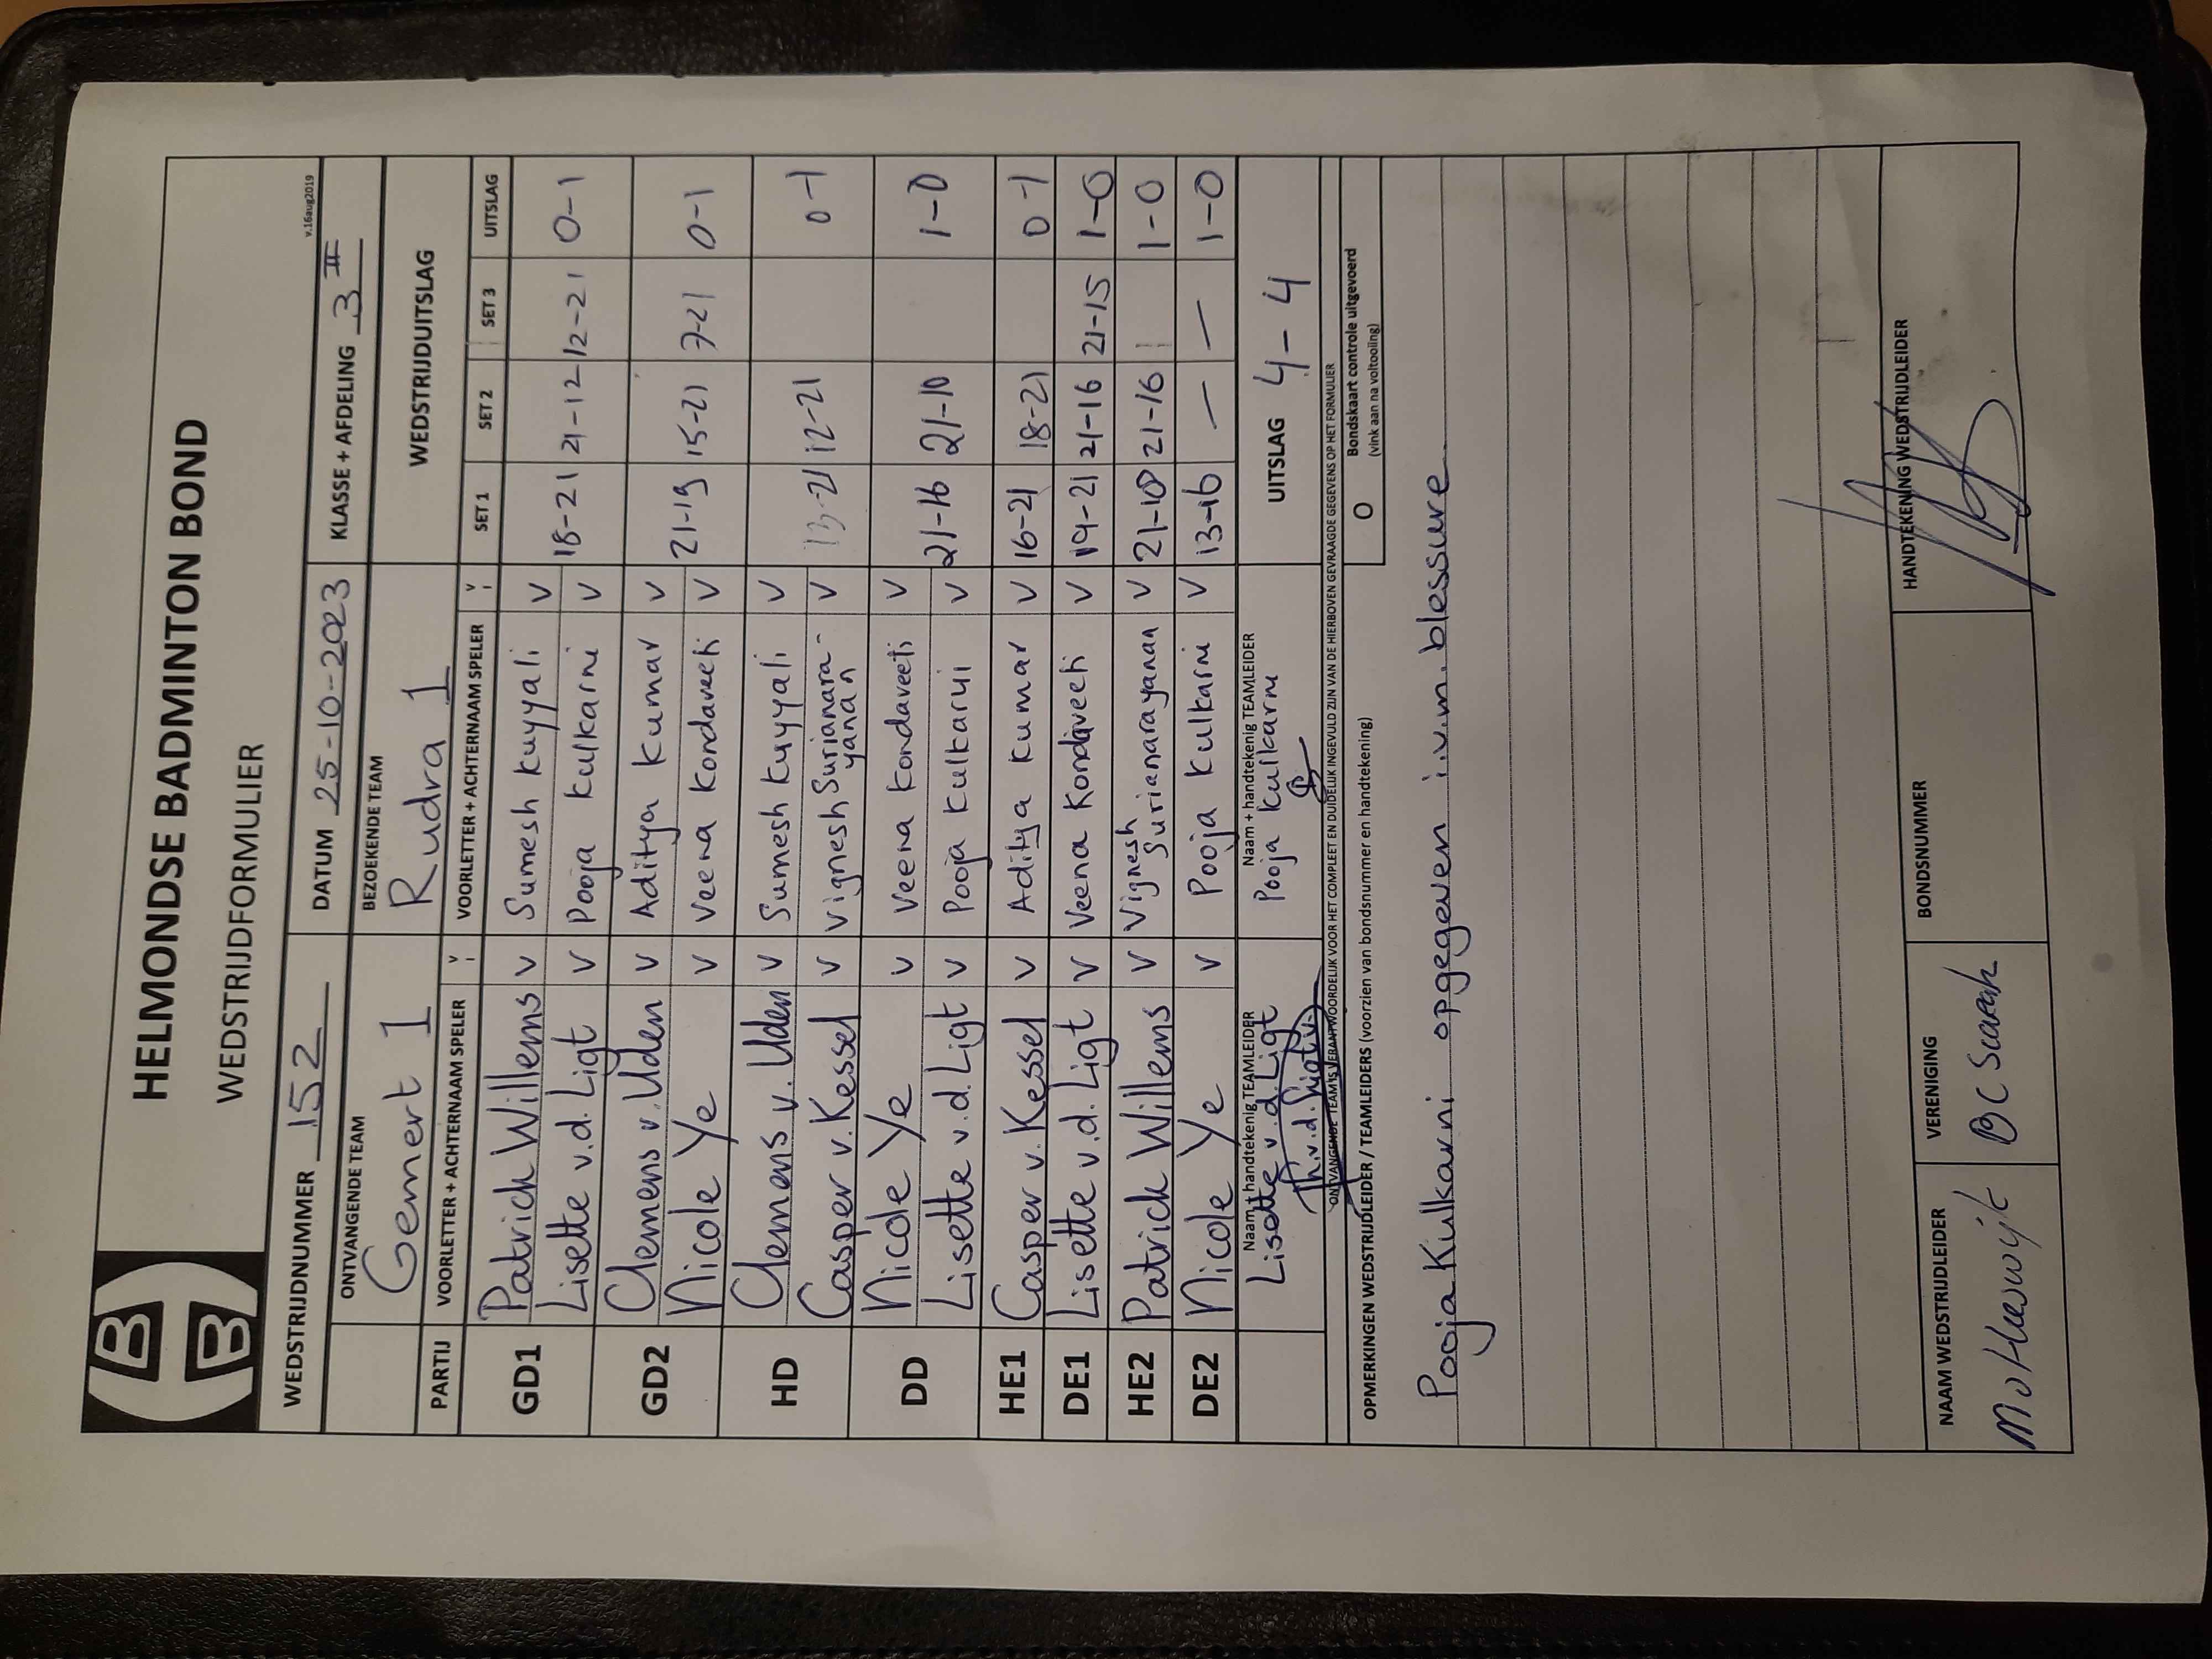 HELMONDSE BADMINTON BOND
WEDSTRIJDFORMULIER
v.16aug2019
WEDSTRIJDNUMMER 152 DATUM 25-10-2023 KLASSE + AFDELING 3 II
ONTVANGENDE TEAM BEZOEKENDE TEAM WEDSTRIJDUITSLAG
Gemert 1 Rudra 1
PARTIJ VOORLETTER + ACHTERNAAM SPELER V VOORLETTER + ACHTERNAAM SPELER V SET 1 SET 2 SET 3 UITSLAG
GD1 Patrick Willems v Sumesh kuyyali v
Lisette v.d. Ligt v Pooja kulkarni v 18-21 21-12 12-21 0-1
GD2 Clemens v. Uden v Aditya kumar v
Nicole Ye v Veena kondaveeti v 21-19 15-21 7-21 0-1
HD Clemens v. Uden v Sumesh kuyyali v
Casper v. Kessel v Vignesh Surianara- v 13-21 12-21 0-1
yanan
DD Nicole Ye v Veena kondaveeti v
Lisette v.d. Ligt v Pooja kulkarni v 21-16 21-10 1-0
HE1 Casper v. Kessel v Aditya kumar v 16-21 18-21 0-1
DE1 Lisette v.d. Ligt v Veena Kondaveeti v 19-21 21-16 21-15 1-0
HE2 Patrick Willems v Vignesh v 21-18 21-16 1-0
Surianarayanan
DE2 Nicole Ye v Pooja kulkarni v 13-16 — — 1-0
Naam + handtekenig TEAMLEIDER Naam + handtekenig TEAMLEIDER UITSLAG 4-4
Lisette v.d. Ligt Pooja kulkarni
ONTVANGENDE TEAM IS VERANTWOORDELIJK VOOR HET COMPLEET EN DUIDELIJK INGEVULD ZIJN VAN DE HIERBOVEN GEVRAAGDE GEGEVENS OP HET FORMULIER
OPMERKINGEN WEDSTRIJDLEIDER / TEAMLEIDERS (voorzien van bondsnummer en handtekening)
O Bondskaart controle uitgevoerd
(vink aan na voltooiing)
Pooja Kulkarni opgegeven i.v.m. blessure.
NAAM WEDSTRIJDLEIDER VERENIGING BONDSNUMMER HANDTEKENING WEDSTRIJDLEIDER
BC